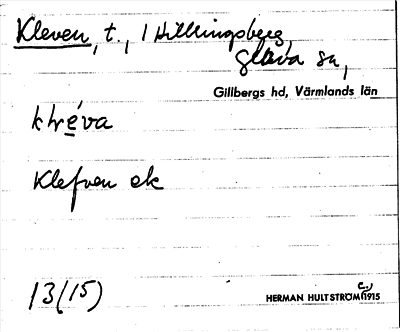 Kleven, t., 1 Hillringsberg
Glava sn,
Gillbergs hd, Värmlands län
klréva
Klefven ek
13(15)
HERMAN HULTSTRÖM 1915